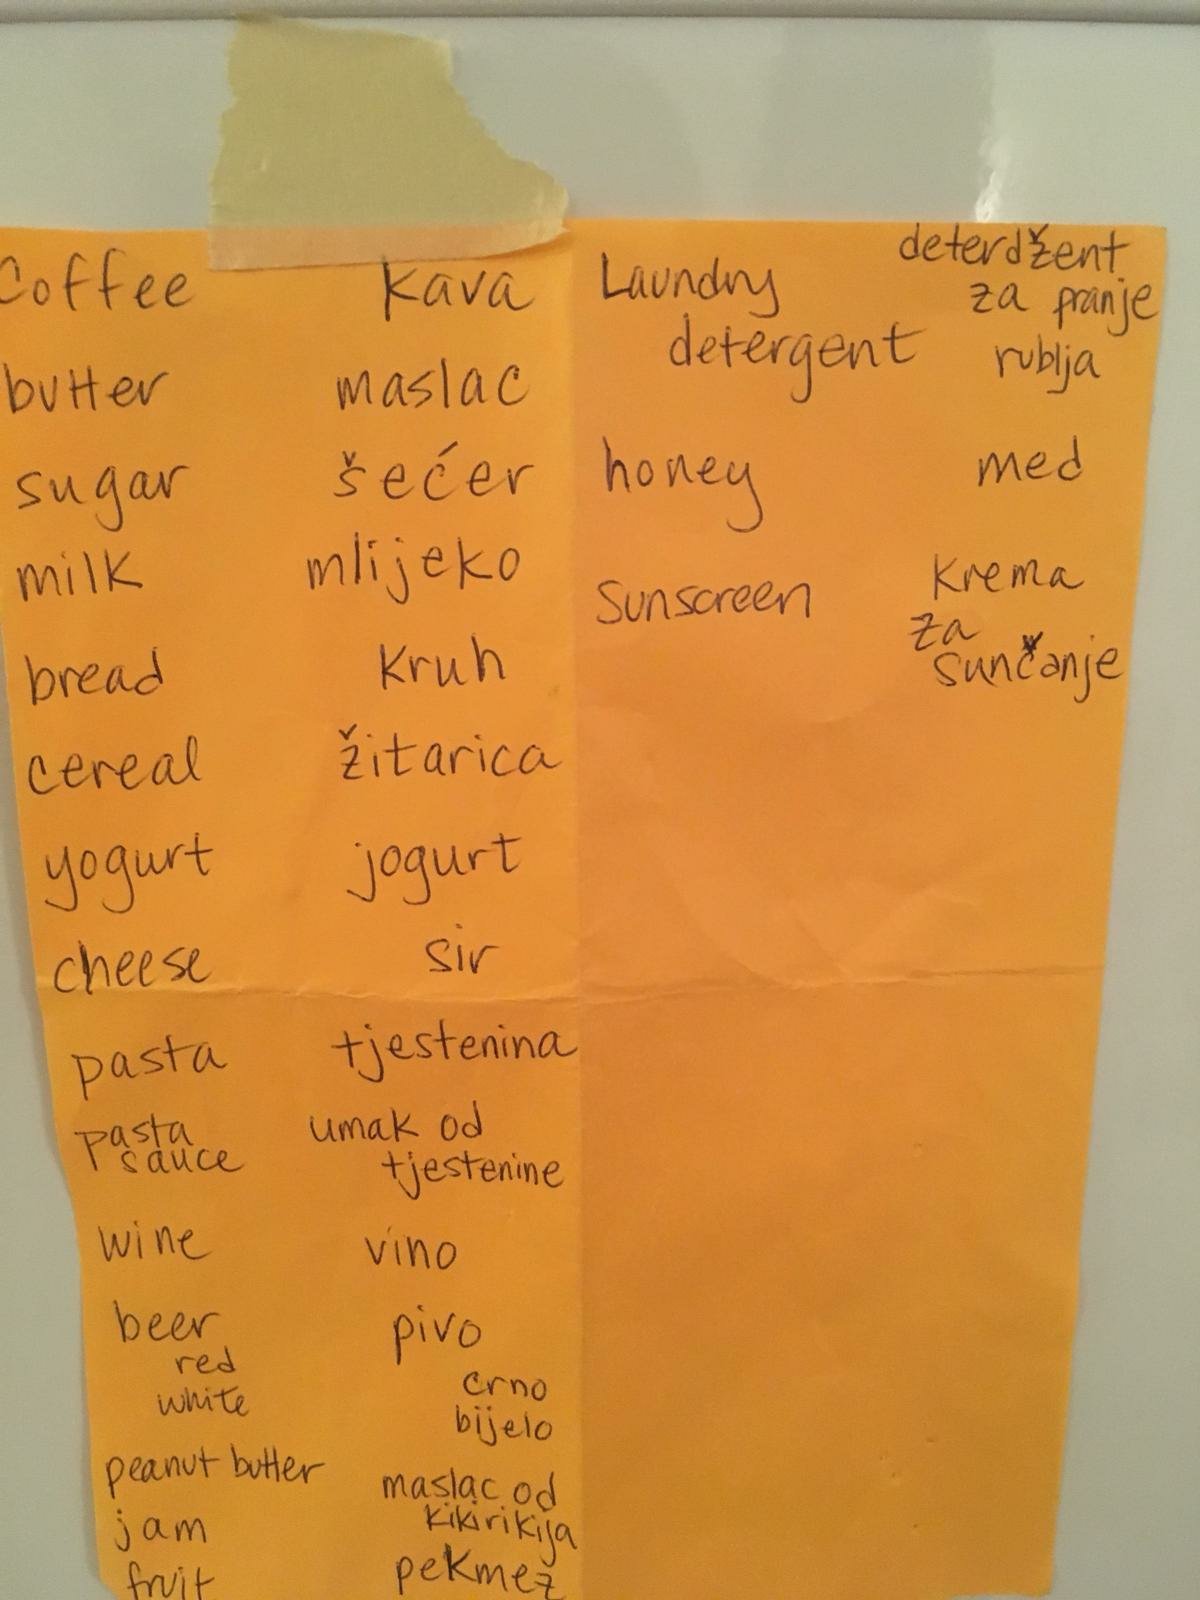 Coffee kava
butter maslac
sugar šećer
milk mlijeko
bread kruh
cereal žitarica
yogurt jogurt
cheese sir
pasta tjestenina
pasta umak od
sauce tjestenine
wine vino
beer pivo
red crno
white bijelo
peanut butter maslac od
kikirikija
jam pekmez
fruit
Laundry deterdžent
detergent za pranje
rublja
honey med
Sunscreen krema
za
sunčanje